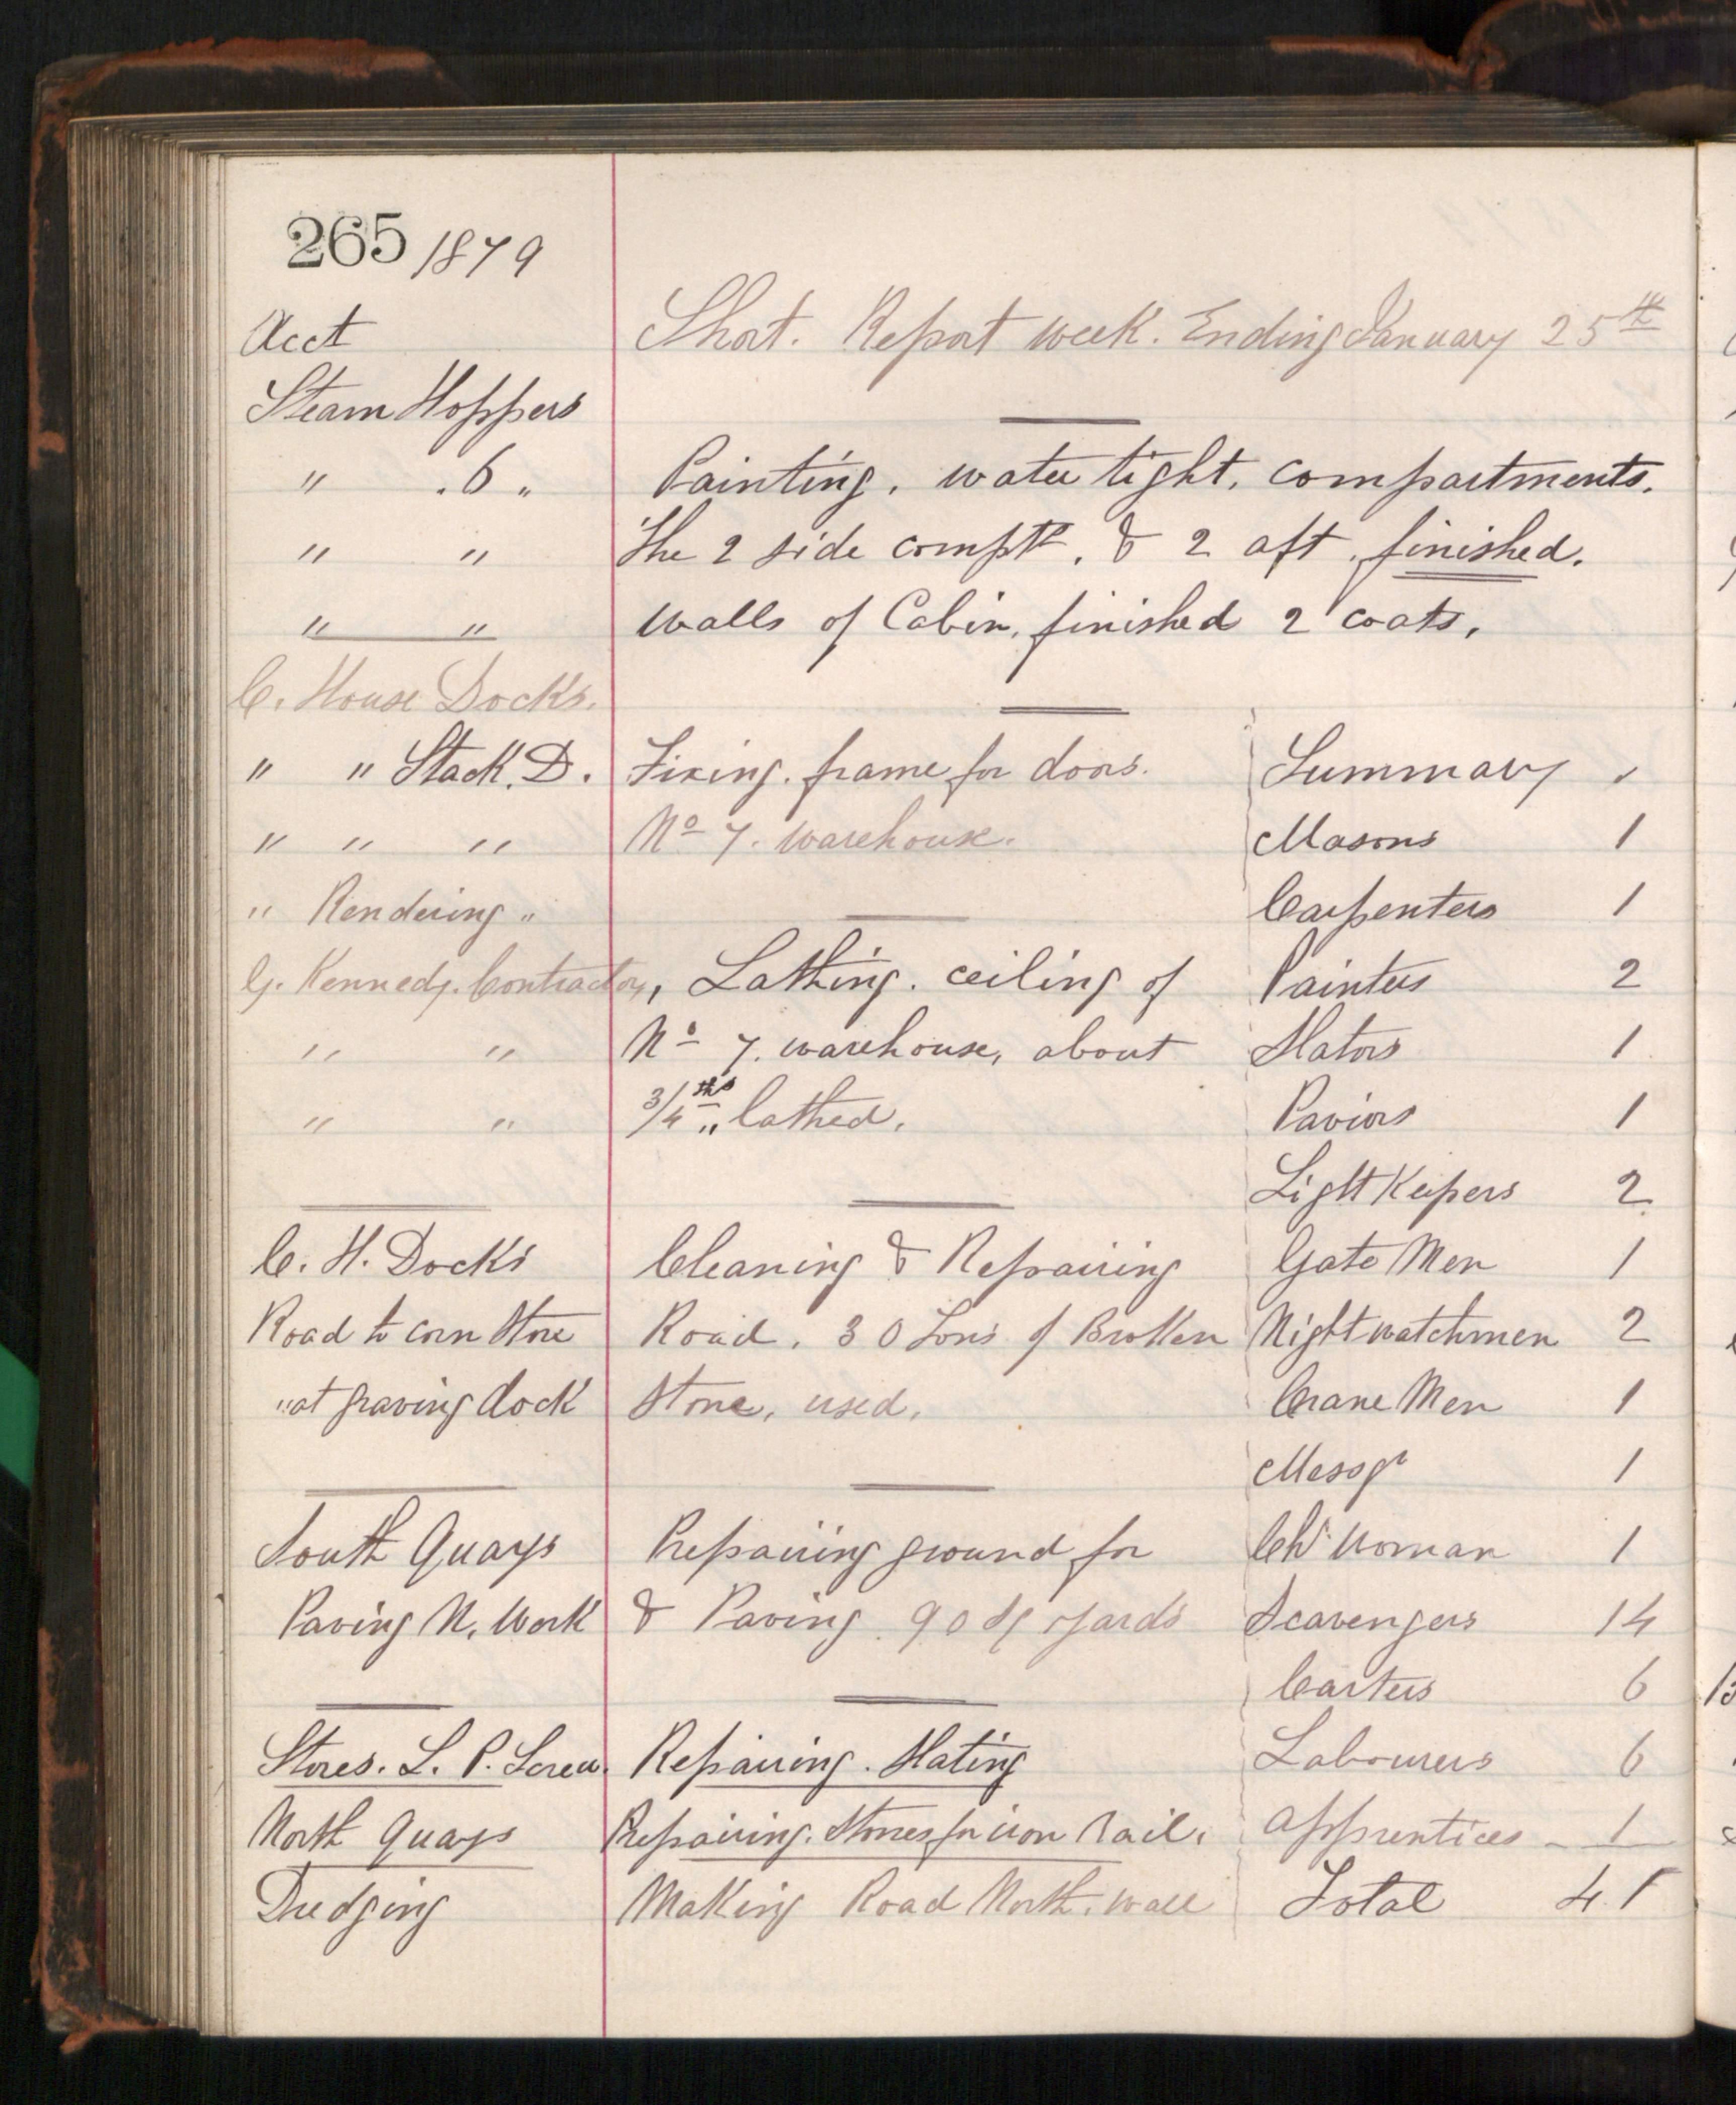 265 1879
Acct Short. Report week. Ending January 25th
Steam Hoppers
" . 6 " Painting. water tight. compartments.
" " The 2 side compts. & 2 aft. finished.
" " Walls of Cabin. finished 2 coats.
C. House Docks.
" " Stack. D. Fixing. frame for doors. Summary "
" " " No 7. Warehouse. Masons 1
" Rendering " Carpenters 1
G. Kennedy. Contractor, Lathing. ceiling of Painters 2
" " No 7. warehouse, about Slators 1
" " 3/4ths " lathed. Paviors 1
Light Keepers 2
C. H. Docks Cleaning & Repairing Gate Men 1
Road to corn Store Road. 30 Tons of Broken Nightwatchmen 2
" at graving dock Stone, used. Crane Men 1
Messgr 1
South Quays Preparing ground for Chr Woman 1
Paving N. Work & Paving. 90 Sq yards Scavengers 14
Carters 6
Stores. L. P. Screw. Repairing. Slating Labourers 6
North Quays Preparing. Stones for iron Rail. apprentices - 1
Dredging Making Road North. wall Total 41